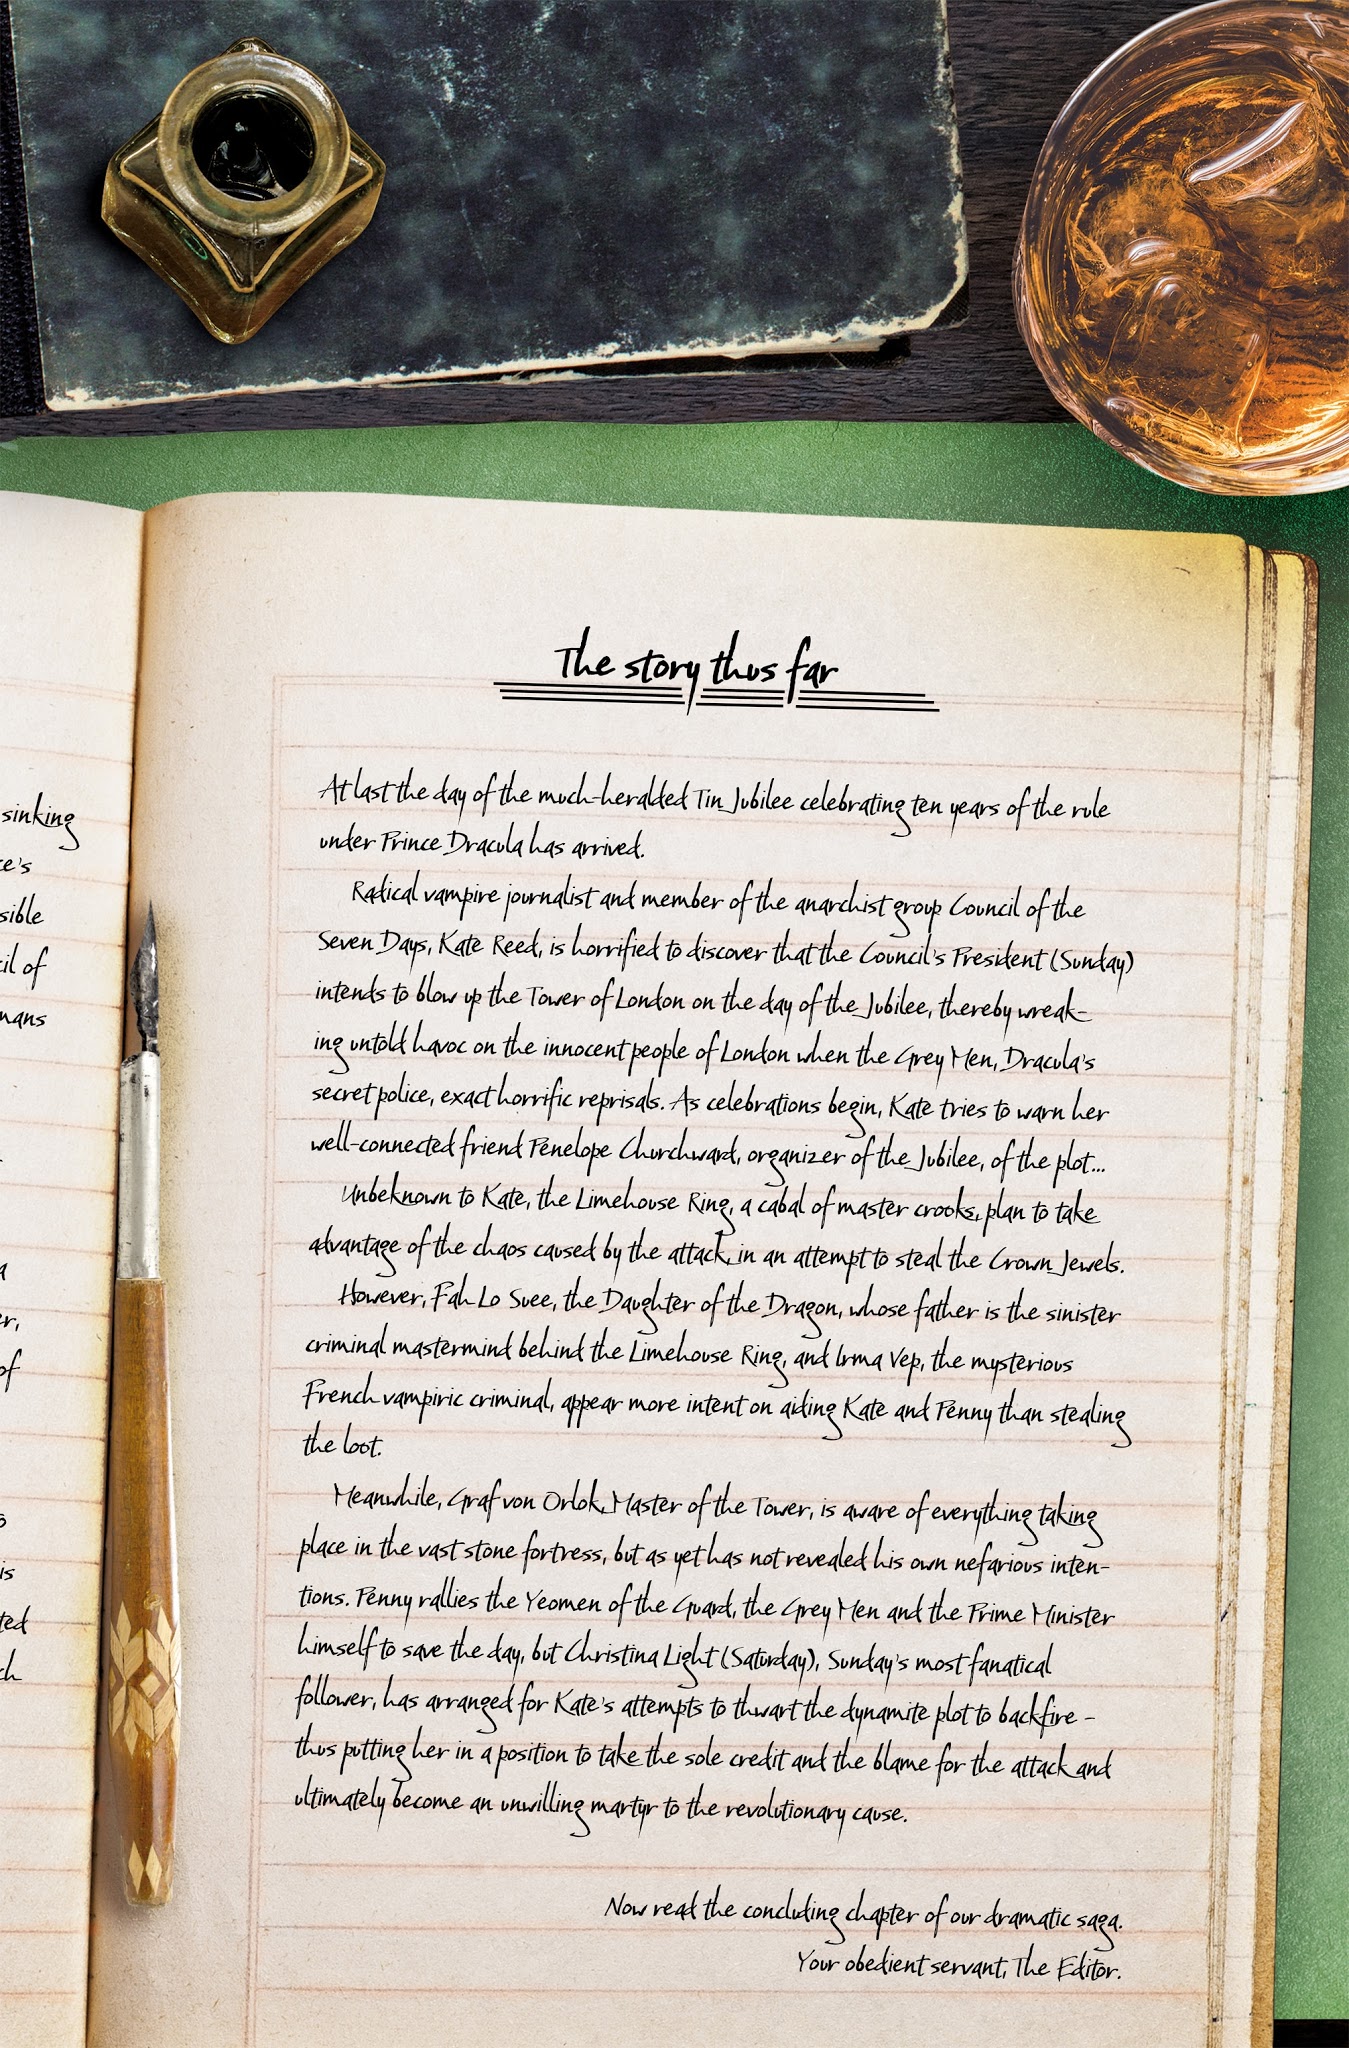 The story thus far
At last the day of the much-heralded Tin Jubilee celebrating ten years of the rule
under Prince Dracula has arrived.
Radical vampire journalist and member of the anarchist group Council of the
Seven Days, Kate Reed, is horrified to discover that the Council's President (Sunday)
intends to blow up the Tower of London on the day of the Jubilee, thereby wreak-
ing untold havoc on the innocent people of London when the Grey Men, Dracula's
secret police, exact horrific reprisals. As celebrations begin, Kate tries to warn her
well-connected friend Penelope Churchward, organizer of the Jubilee, of the plot...
Unbeknown to Kate, the Limehouse Ring, a cabal of master crooks, plan to take
advantage of the chaos caused by the attack, in an attempt to steal the Crown Jewels.
However, Fah Lo Suee, the Daughter of the Dragon, whose father is the sinister
criminal mastermind behind the Limehouse Ring, and Irma Vep, the mysterious
French vampiric criminal, appear more intent on aiding Kate and Penny than stealing
the loot.
Meanwhile, Graf von Orlok, Master of the Tower, is aware of everything taking
place in the vast stone fortress, but as yet has not revealed his own nefarious inten-
tions. Penny rallies the Yeomen of the Guard, the Grey Men and the Prime Minister
himself to save the day, but Christina Light (Saturday), Sunday's most fanatical
follower, has arranged for Kate's attempts to thwart the dynamite plot to backfire –
thus putting her in a position to take the sole credit and the blame for the attack and
ultimately become an unwilling martyr to the revolutionary cause.
Now read the concluding chapter of our dramatic saga.
Your obedient servant, The Editor.
sinking
sible
of